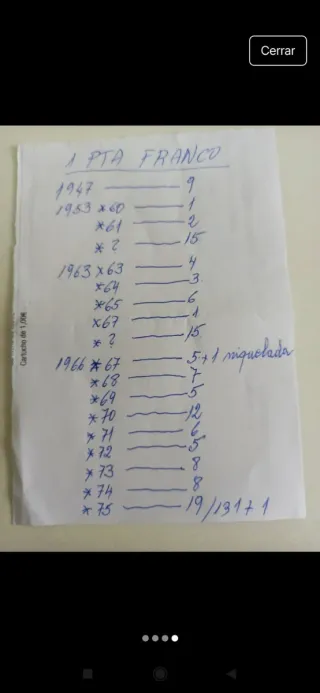 Cerrar
1 PTA FRANCO
1947 —— 9
1953 *60 —— 1
*61 —— 2
*? —— 15
1963 *63 —— 4
*64 —— 3
*65 —— 6
*67 —— 1
*? —— 15
1966 *67 —— 5+1 niquelada
*68 —— 7
*69 —— 5
*70 —— 12
*71 —— 6
*72 —— 5
*73 —— 8
*74 —— 8
*75 —— 19/131+1
Cartucho de 1,00€